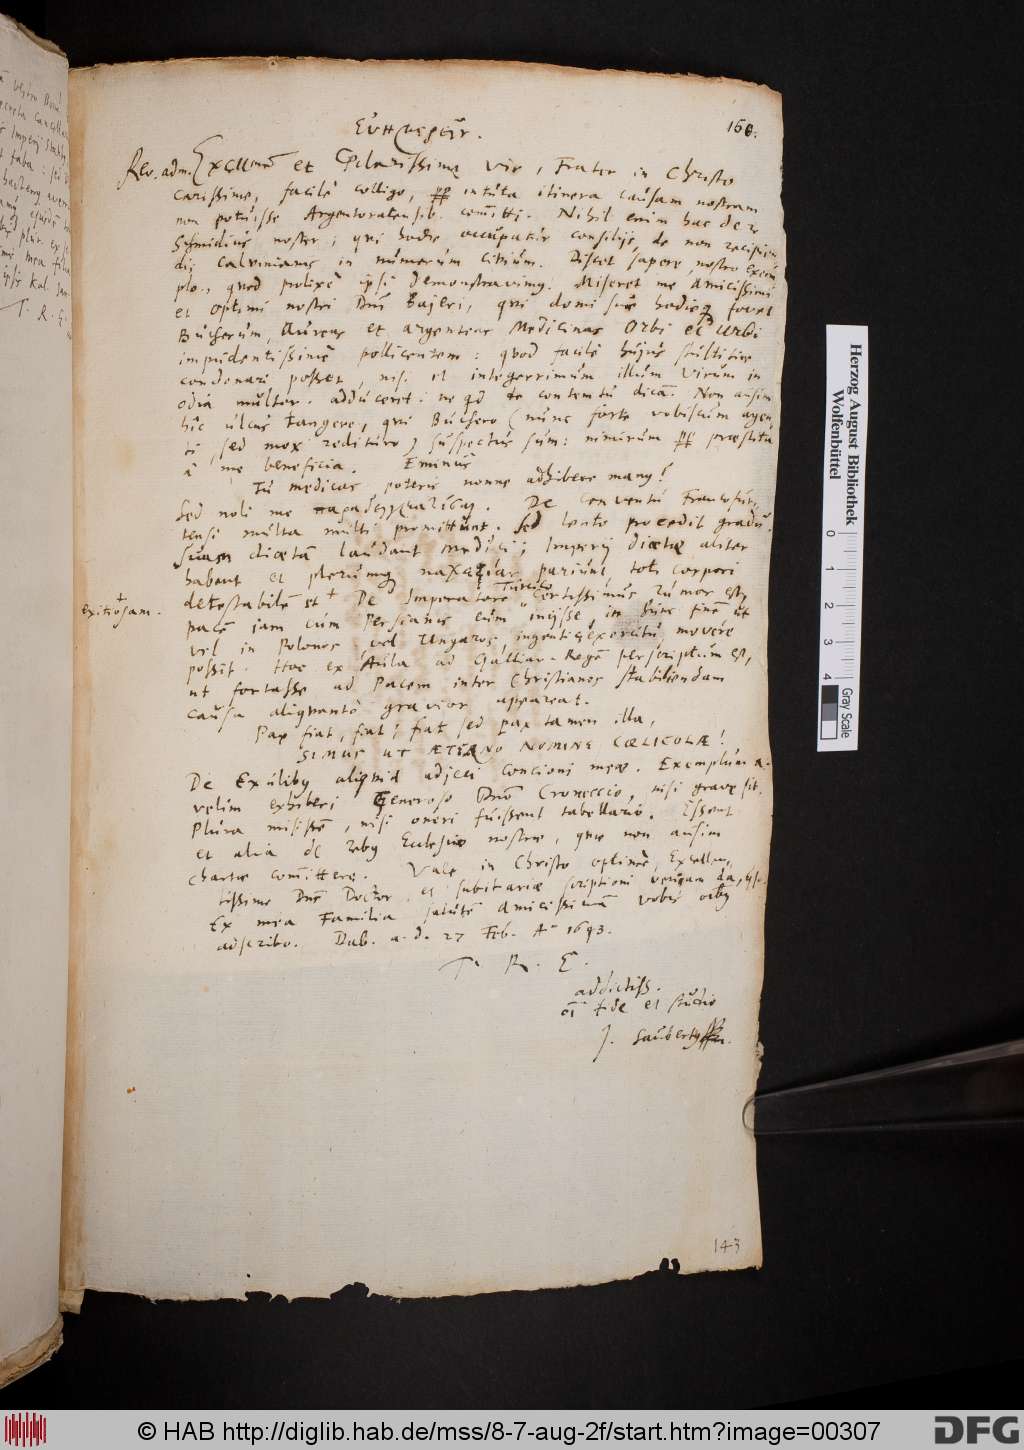 160.
Rev. adm. Excellme et Clarissime Vir, Frater in Christo
carissime, facilè colligo, intuta itinera causam nostram
non potuisse Argentoratensib. com̄itti. Nihil enim hac de re
Schmidius noster, qui hodie occupatur consilijs, de non recipien-
dis Calvinianis in numerum civium. Discet sapere nostro exem-
plo, quod prolixè ipsi demonstravimq. Miseret me Amicissimi
et optimi nostri Dn̄i Bajeri, qui domi suæ hodieq fovet
Bucherum, Aureas et argenteas Medicinas Orbi et Urbi
impudentissimè pollicentem: quod facilè hujus stultitiæ
condonari posset, nisi et integerrimum illum Virum in
odia multor. adduceret: ne qd de contemtu dicā. Non ausim
hic ulcus tangere, qui Buchero (nunc fortè vobiscum agen-
ti, sed mox redituro) suspectus sum: nimirum præstita
à me beneficia. Eminus
Tu medicas poteris nonne adhibere manq?
Sed noli me. De Conventu Francofur-
tensi multa multi promittunt. Sed lento procedit gradu.
Suam diætam laudant medici; Imperij diætæ aliter
habent et plerumq pariunt toti corpori
detestabilē et + De Imperatore Turcico certissimus rumor est,
exitiosam.
pacē jam cum Persianis eum inijsse, in hunc finē ut
vel in Polonos vel Ungaros ingenti exercitu movere
possit. Hoc ex Aula ad Galliar. Regē perscriptum est,
ut fortasse ad Pacem inter Christianos stabiliendam
causa aliquantò gravior appareat.
Pax fiat, fiat, fiat sed pax tamen illa,
SIMUS UT ÆTERNO NOMINE CŒLICOLÆ!
De Exulibq aliquid adjeci concioni meæ. Exemplum
velim exhiberi Generoso Dn̄o Croneccio, nisi grave sit.
Plura misissē, nisi oneri fuissent tabellario. Essent
et alia de rebq Ecclesiæ nostræ, quæ non ausim
chartæ com̄ittere. Vale in Christo optimè, Excellen-
tissime Dn̄e Doctor, et subitariæ scriptioni veniam da,
Ex mea Familia salutē amicissimam vobis
adscribo. Dab. a. d. 27 Feb. Aº 1643.
T. R. E.
addictiss.
oī fide et studio
J. Saubertq
143
T. R. E.
Herzog August Bibliothek
Wolfenbüttel
0 1 2 3 4
Gray Scale
© HAB http://diglib.hab.de/mss/8-7-aug-2f/start.htm?image=00307
DFG